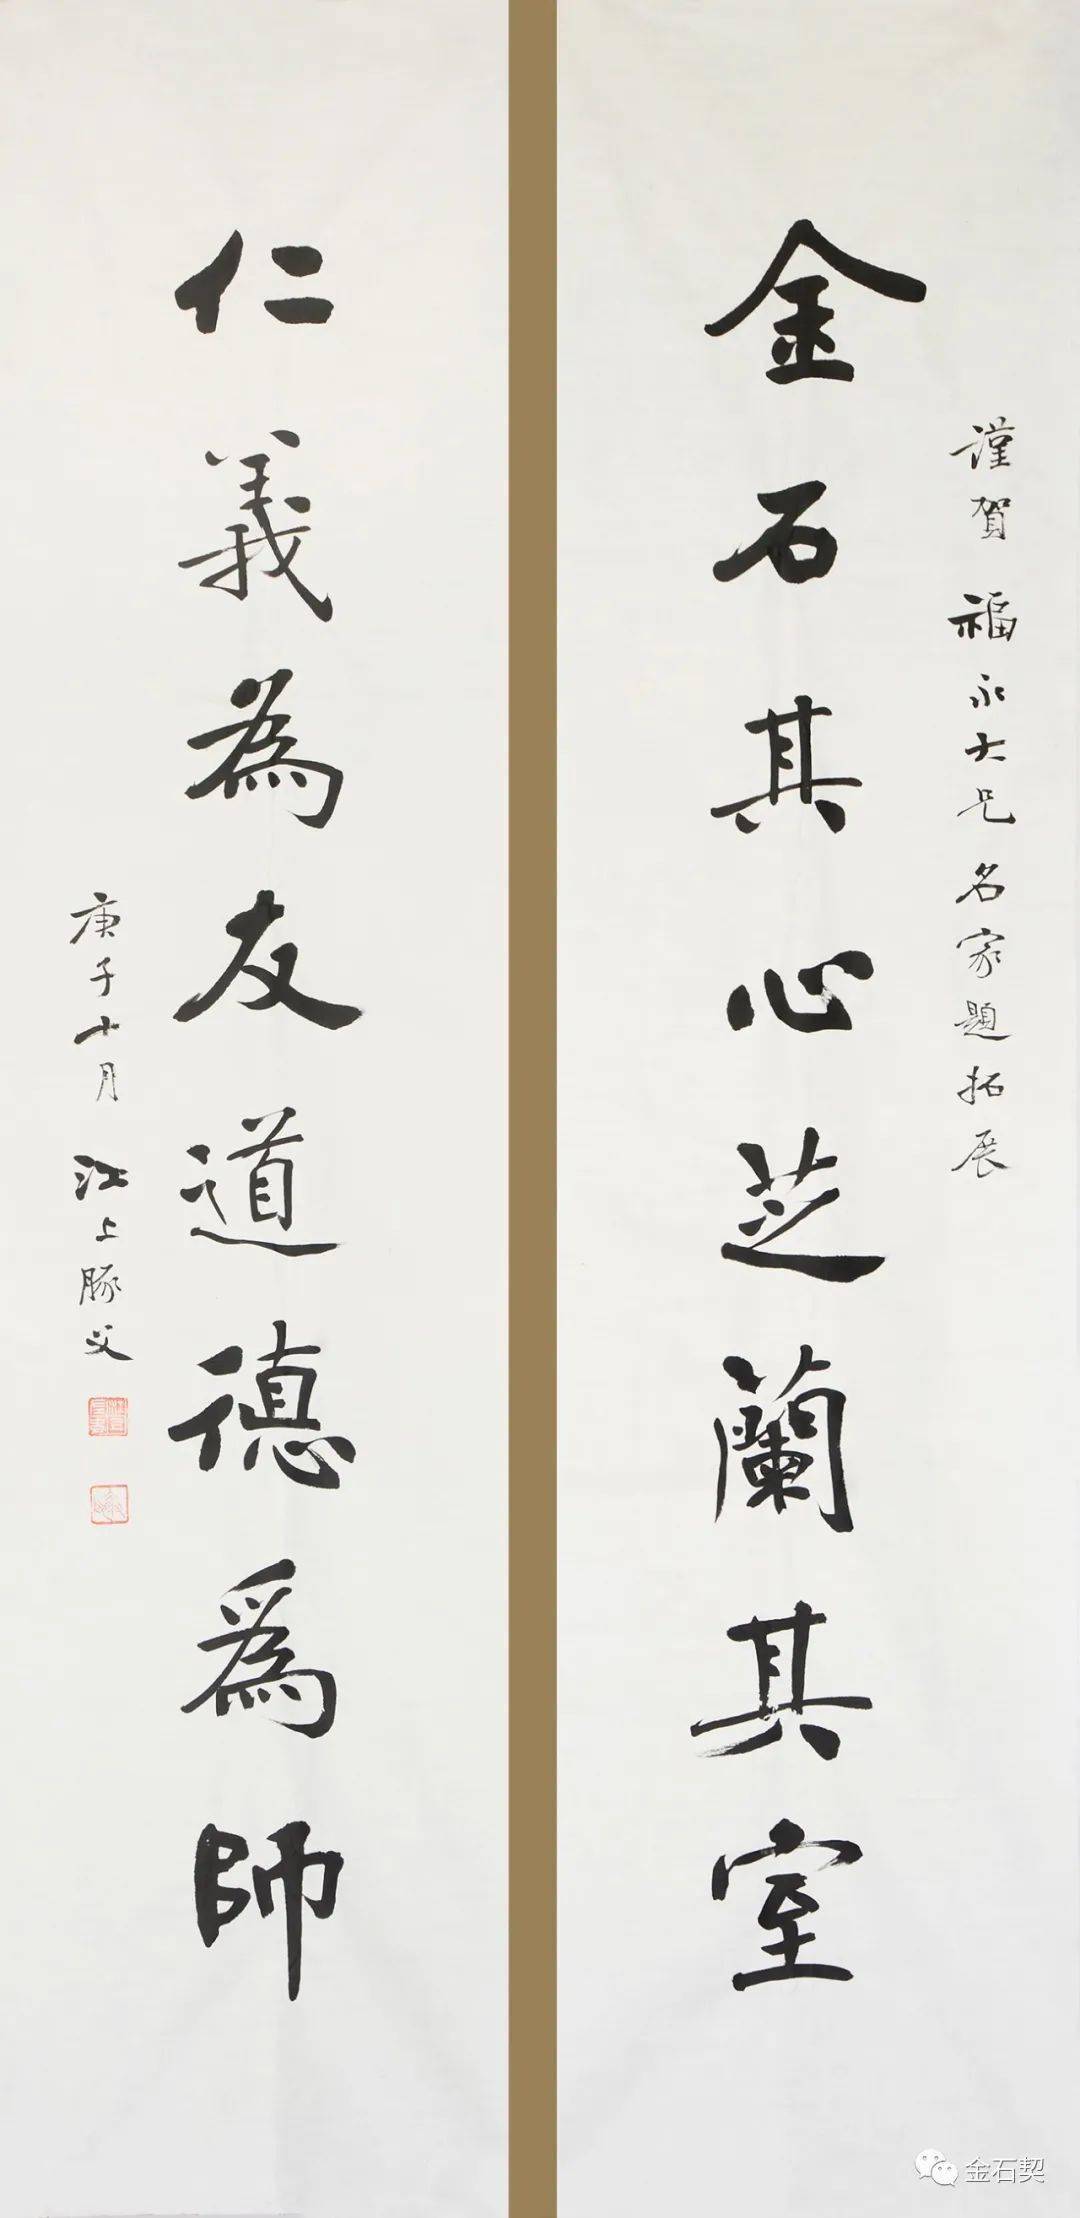 謹賀 福永大兄名家題拓展
金石其心芝蘭其室
仁義為友道德爲師
庚子十月 江上豚父
金石契